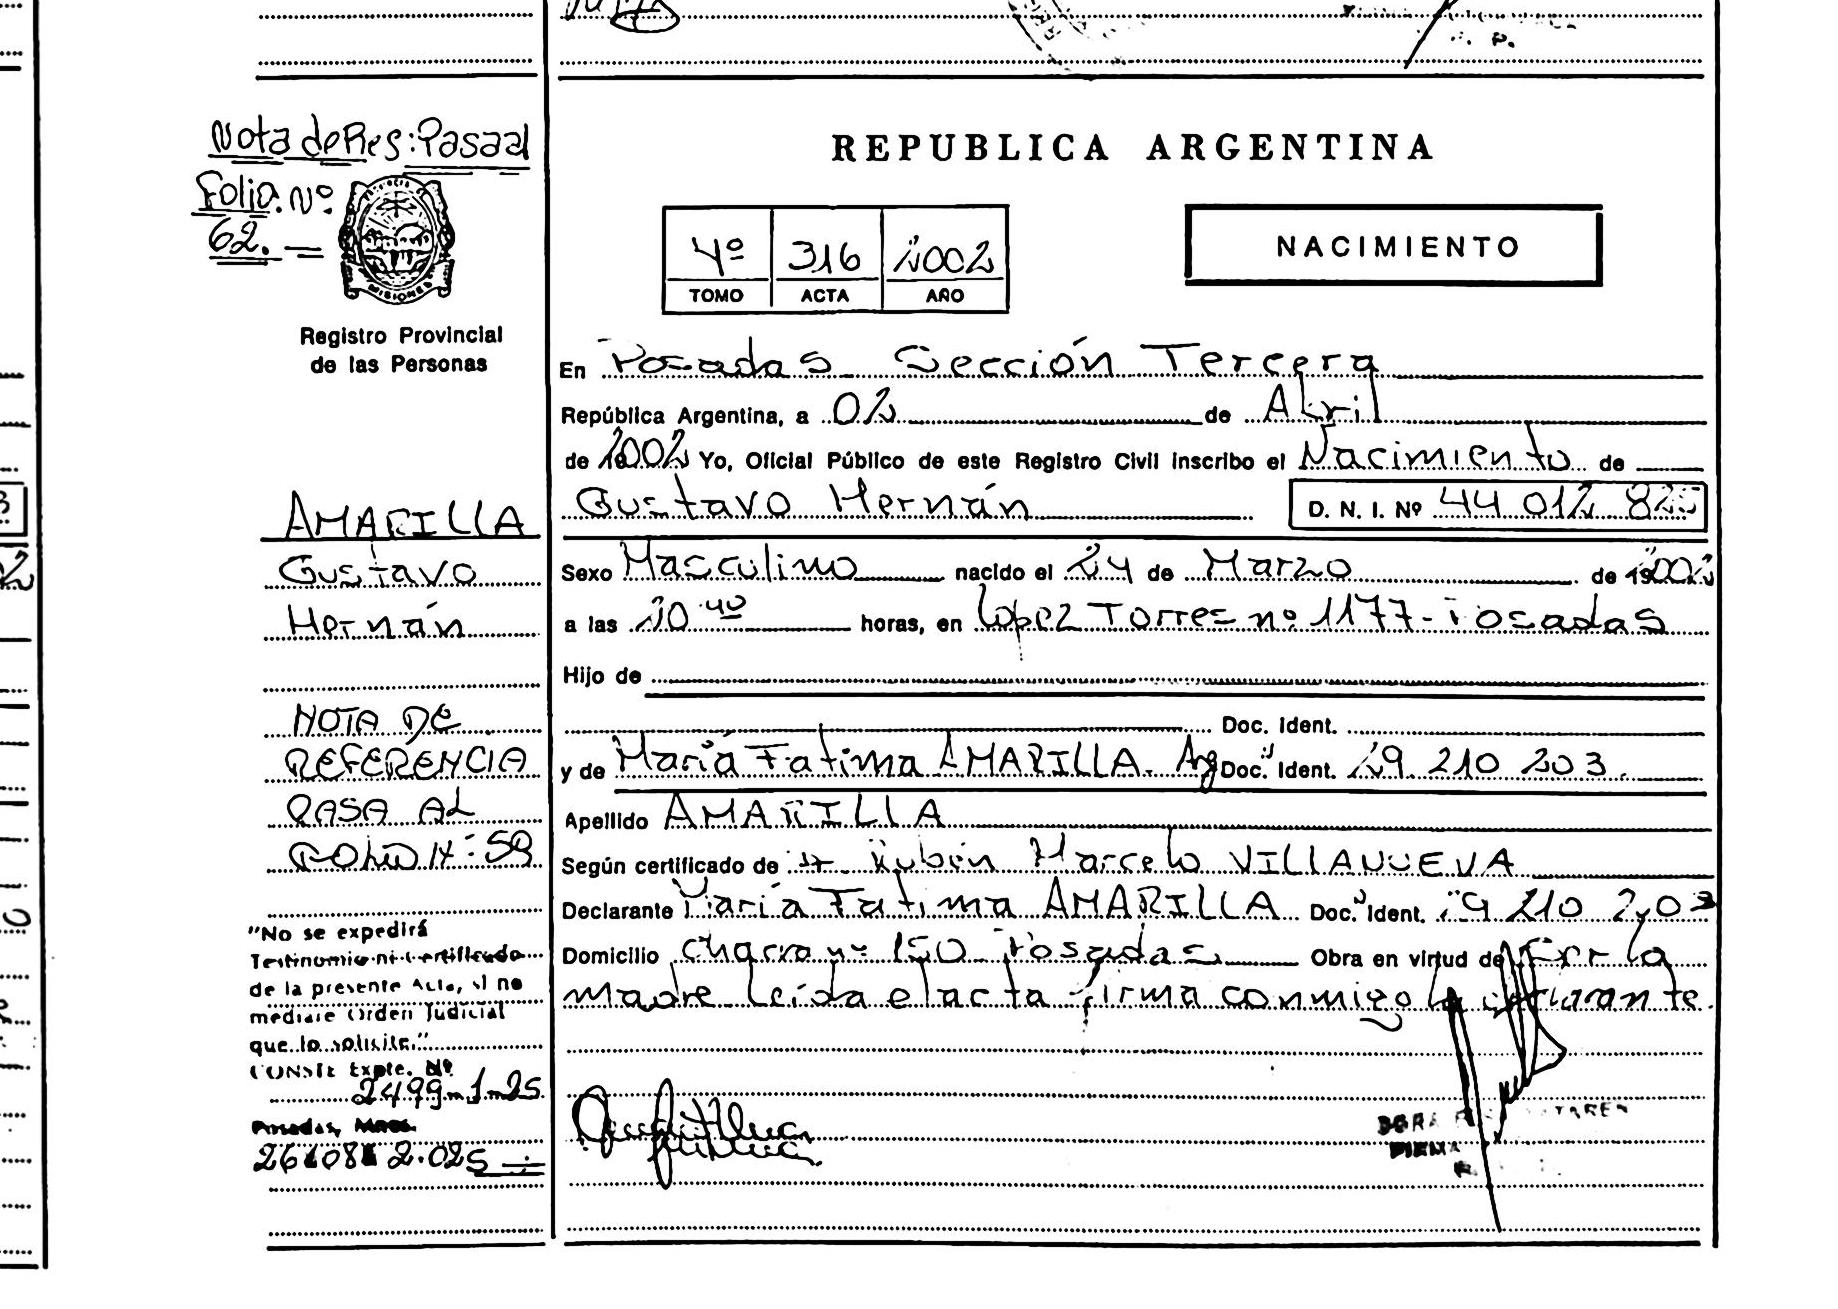 Nota de Res: Pasa al
Folio. Nº
62. —
MISIONES
Registro Provincial
de las Personas
AMARILLA
Gustavo
Hernán
NOTA DE
REFERENCIA
PASA AL
FOLIO Nº: 59
"No se expedirá
Testimonio ni Certificado
de la presente Acta, si no
mediare Orden Judicial
que lo solicite."
CONSTE Expte. Nº
2499-1-25
Posadas, Mnes.
26 08 2.025
REPUBLICA ARGENTINA
4º 316 2002
TOMO ACTA AÑO
NACIMIENTO
En Posadas Sección Tercera
República Argentina, a 02 de Abril
de 2002 Yo, Oficial Público de este Registro Civil inscribo el Nacimiento de
Gustavo Hernán D. N. I. Nº 44 012 82
Sexo Masculino nacido el 24 de Marzo de 2002
a las 20 40 horas, en Lopez Torres nº 1177 - Posadas
Hijo de
Doc. Ident.
y de María Fatima AMARILLA. Arg Doc. Ident. 29 210 203.
Apellido AMARILLA
Según certificado de Rubén Marcelo VILLANUEVA
Declarante María Fatima AMARILLA Doc. Ident. 29 210 203
Domicilio chacra nº 150 Posadas Obra en virtud de Ser la
madre Leída el acta firma conmigo la declarante.